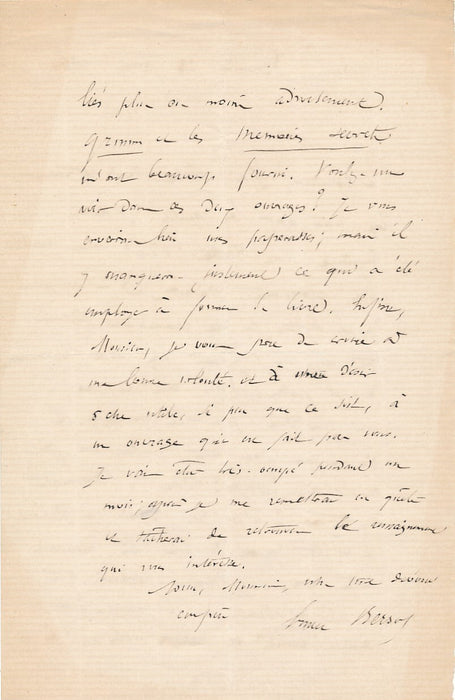 liés plus ou moins adroitement.
Grimm et les Memoires secrets
m'ont beaucoup fourni. Voulez-vous
voir dans ces deux ouvrages? Je vous
enverrai bien mes paperasses; mais il
y manquera justement ce qui a été
employé à former le livre. Enfin,
Monsieur, je vous prie de croire à
ma bonne volonté, et à mon désir
d'être utile, si peu que ce soit, à
un ouvrage qui en fait par vous.
Je vais être très-occupé pendant un
mois; après je me remettrai en quête
et tâcherai de retrouver le renseignement
qui vous intéresse.
Monsieur, votre dévoué
confrère
Ernest Bersot